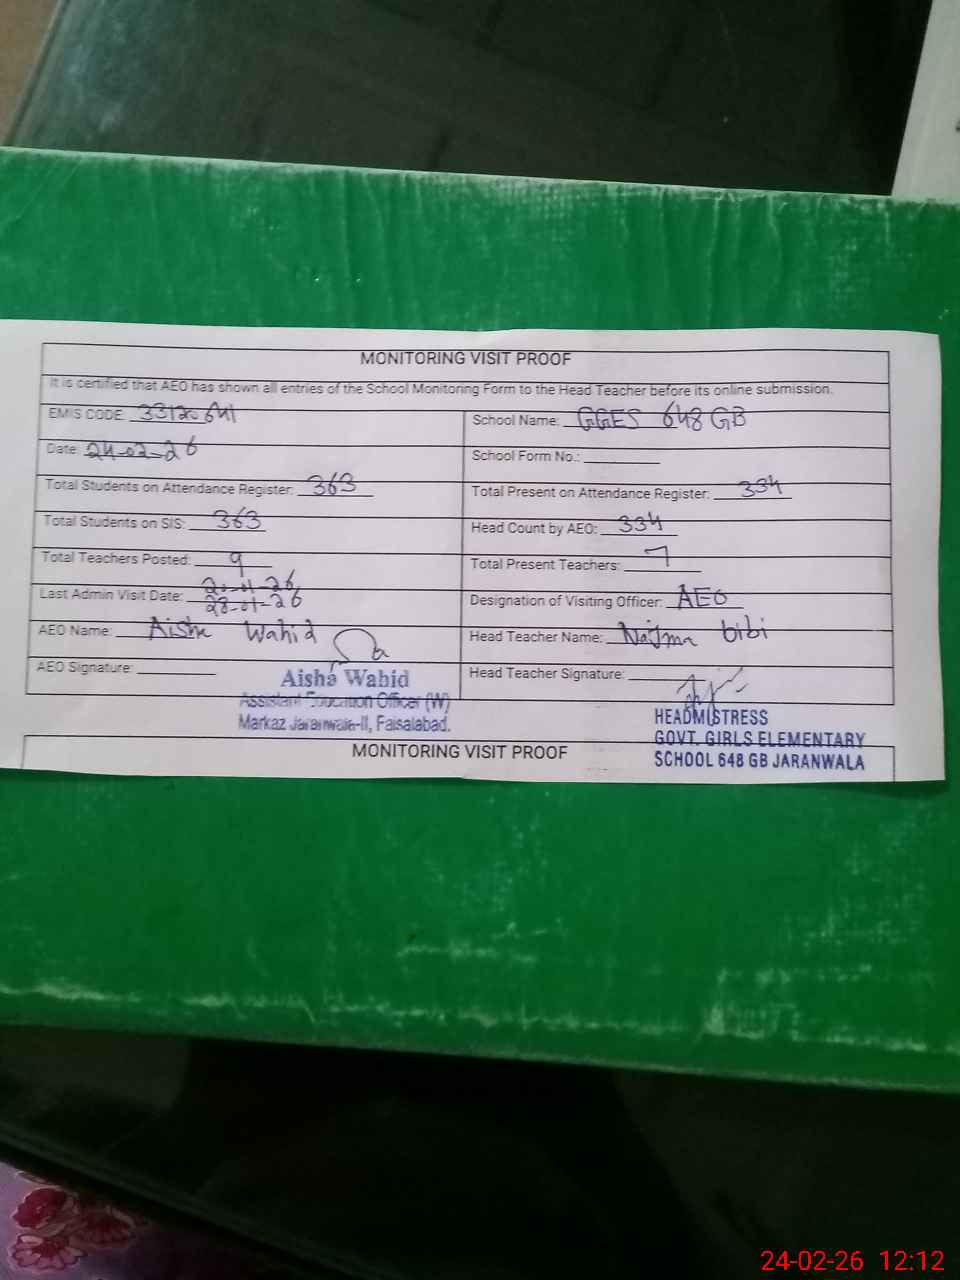 MONITORING VISIT PROOF
It is certified that AEO has shown all entries of the School Monitoring Form to the Head Teacher before its online submission.
EMIS CODE: 33120641
School Name: GGES 648 GB
Date: 24-02-26
School Form No.:
Total Students on Attendance Register: 363
Total Present on Attendance Register: 334
Total Students on SIS: 363
Head Count by AEO: 334
Total Teachers Posted: 9
Total Present Teachers: 7
Last Admin Visit Date: 28-01-26
Designation of Visiting Officer: AEO
AEO Name: Aisha Wahid
Head Teacher Name: Najma bibi
AEO Signature:
Head Teacher Signature:
Aisha Wahid
Assistant Education Officer (W)
Markaz Jaranwala-II, Faisalabad.
HEADMISTRESS
GOVT. GIRLS ELEMENTARY
SCHOOL 648 GB JARANWALA
MONITORING VISIT PROOF
24-02-26 12:12